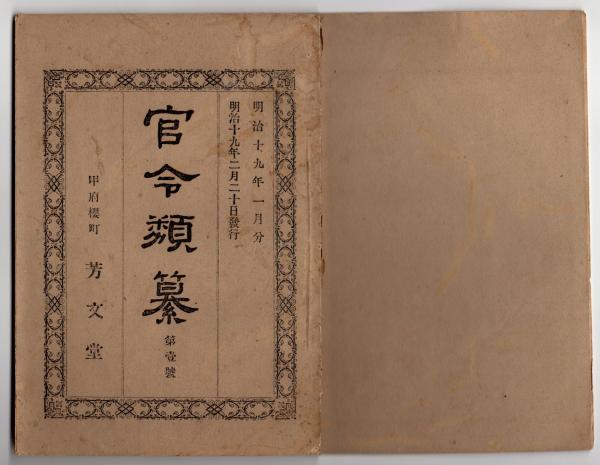 明治十九年一月分
明治十九年二月二十日發行
官令類纂
第壹號
甲府櫻町 芳文堂